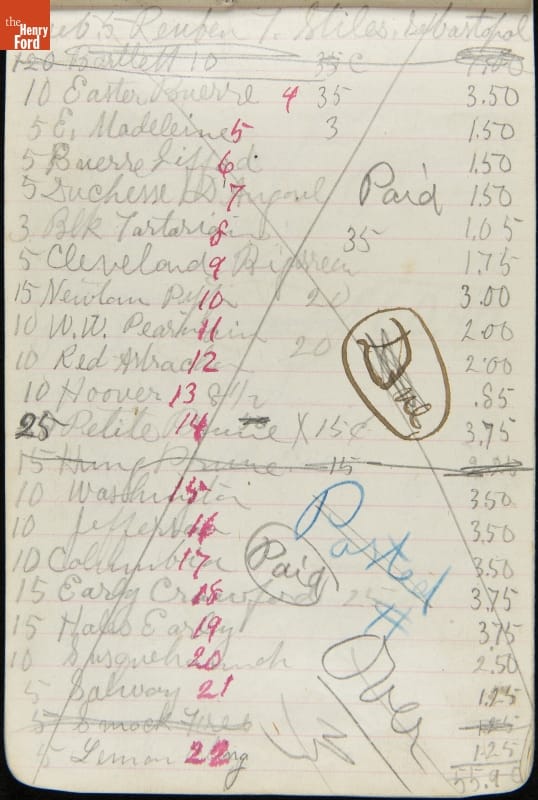 the Henry Ford
5 Reuben T. Stiles, Sebastopol
120 Bartlett 10 35 c 7.00
10 Easter Buerre 4 35 3.50
5 E. Madeleine 5 3 1.50
5 Buerre 6 1.50
5 Duchesse D' 7 Paid 1.50
3 Blk Tartarian 8 35 1.05
5 Cleveland 9 1.75
15 Newtown 10 20 3.00
10 W.W. Pearmain 11 2.00
10 Red Astrachan 12 20 2.00
Due
10 Hoover 13 8 1/2 .85
25 Petite Prune 14 X 15¢ 3.75
15 Hung Prune 15 2.25
10 Washington 15 3.50
10 Jefferson 16 3.50
Posted
10 Columbia 17 Paid 3.50
15 Early Crawford 18 25 3.75
15 Hales Early 19 3.75
10 Susquehannah 20 2.50
Over
5 Salway 21 1.25
5 Smock Free 1.25
5 Lemon Cling 22 1.25
55.90